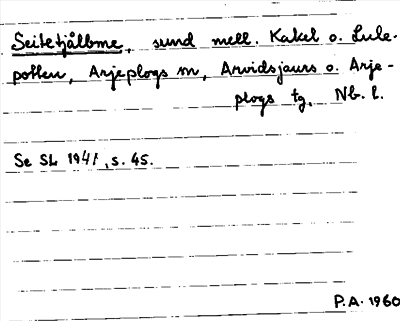 Seitetjålbme, sund mell. Kakel o. Lule-
potten, Arjeplogs sn, Arvidsjaurs o. Arje-
plogs tg, Nb. l.
Se SL 1941, s. 45.
P.A. 1960